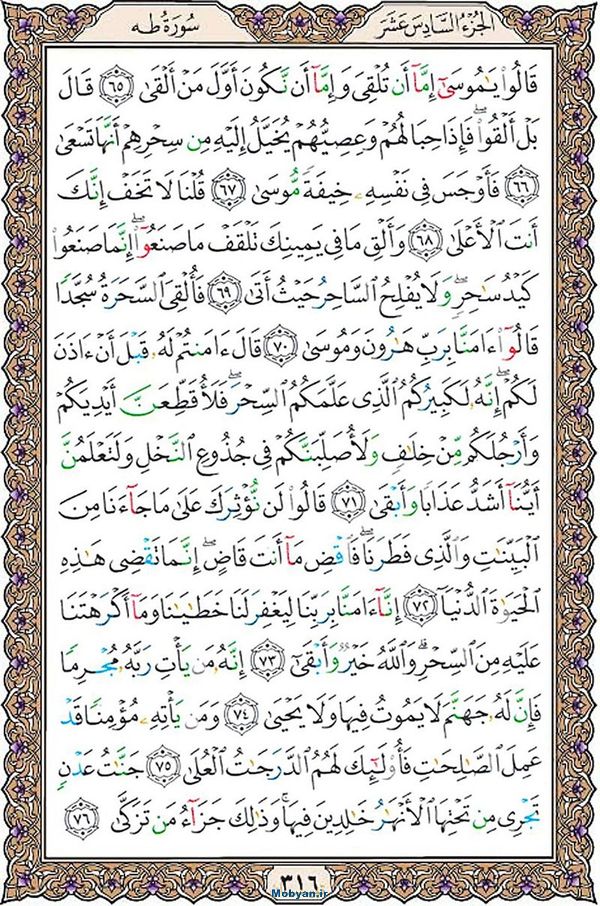 الجزء السادس عشر
سورة طه
قَالُوا۟ يَـٰمُوسَىٰٓ إِمَّآ أَن تُلْقِىَ وَإِمَّآ أَن نَّكُونَ أَوَّلَ مَنْ أَلْقَىٰ ٦٥ قَالَ
بَلْ أَلْقُوا۟ ۖ فَإِذَا حِبَالُهُمْ وَعِصِيُّهُمْ يُخَيَّلُ إِلَيْهِ مِن سِحْرِهِمْ أَنَّهَا تَسْعَىٰ
٦٦ فَأَوْجَسَ فِى نَفْسِهِۦ خِيفَةً مُّوسَىٰ ٦٧ قُلْنَا لَا تَخَفْ إِنَّكَ
أَنتَ ٱلْأَعْلَىٰ ٦٨ وَأَلْقِ مَا فِى يَمِينِكَ تَلْقَفْ مَا صَنَعُوٓا۟ ۖ إِنَّمَا صَنَعُوا۟
كَيْدُ سَـٰحِرٍ ۖ وَلَا يُفْلِحُ ٱلسَّاحِرُ حَيْثُ أَتَىٰ ٦٩ فَأُلْقِىَ ٱلسَّحَرَةُ سُجَّدًا
قَالُوٓا۟ ءَامَنَّا بِرَبِّ هَـٰرُونَ وَمُوسَىٰ ٧٠ قَالَ ءَامَنتُمْ لَهُۥ قَبْلَ أَنْ ءَاذَنَ
لَكُمْ ۖ إِنَّهُۥ لَكَبِيرُكُمُ ٱلَّذِى عَلَّمَكُمُ ٱلسِّحْرَ ۖ فَلَأُقَطِّعَنَّ أَيْدِيَكُمْ
وَأَرْجُلَكُم مِّنْ خِلَـٰفٍ وَلَأُصَلِّبَنَّكُمْ فِى جُذُوعِ ٱلنَّخْلِ وَلَتَعْلَمُنَّ
أَيُّنَآ أَشَدُّ عَذَابًا وَأَبْقَىٰ ٧١ قَالُوا۟ لَن نُّؤْثِرَكَ عَلَىٰ مَا جَآءَنَا مِنَ
ٱلْبَيِّنَـٰتِ وَٱلَّذِى فَطَرَنَا ۖ فَٱقْضِ مَآ أَنتَ قَاضٍ ۖ إِنَّمَا تَقْضِى هَـٰذِهِ
ٱلْحَيَوٰةَ ٱلدُّنْيَآ ٧٢ إِنَّآ ءَامَنَّا بِرَبِّنَا لِيَغْفِرَ لَنَا خَطَـٰيَـٰنَا وَمَآ أَكْرَهْتَنَا
عَلَيْهِ مِنَ ٱلسِّحْرِ ۗ وَٱللَّهُ خَيْرٌ وَأَبْقَىٰٓ ٧٣ إِنَّهُۥ مَن يَأْتِ رَبَّهُۥ مُجْرِمًا
فَإِنَّ لَهُۥ جَهَنَّمَ لَا يَمُوتُ فِيهَا وَلَا يَحْيَىٰ ٧٤ وَمَن يَأْتِهِۦ مُؤْمِنًا قَدْ
عَمِلَ ٱلصَّـٰلِحَـٰتِ فَأُو۟لَـٰٓئِكَ لَهُمُ ٱلدَّرَجَـٰتُ ٱلْعُلَىٰ ٧٥ جَنَّـٰتُ عَدْنٍ
تَجْرِى مِن تَحْتِهَا ٱلْأَنْهَـٰرُ خَـٰلِدِينَ فِيهَا ۚ وَذَٰلِكَ جَزَآءُ مَن تَزَكَّىٰ ٧٦
٣١٦
Mobyan.ir